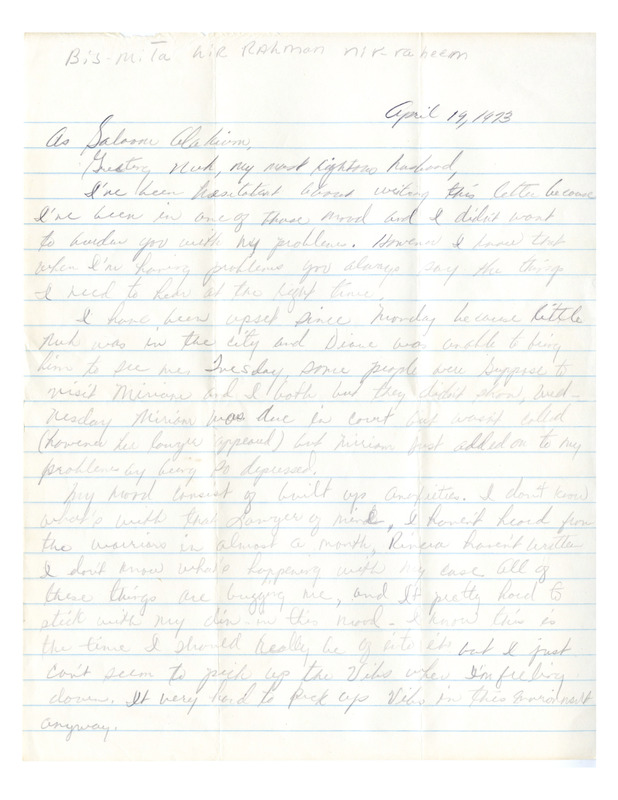 Bis-mi'la hir Rahman nir-raheem
April 19, 1973
As Salaam Alakiom,
Greeting Nuh, my most rightous husband,
I've been hesitatent about writing this letter because
I've been in one of those mood and I didn't want
to burden you with my problems. However I know that
when I'm having problems you always say the things
I need to hear at the right time.
I have been upset since Monday because little
Nuh was in the city and Diane was unable to bring
him to see me. Tuesday some people were suppose to
visit Miriam and I both but they didn't show, Wed-
nesday Miriam was due in court but wasn't called
(however her lawyer appeared) but Miriam just added on to my
problems by being so depressed.
My mood consist of built up anxieties. I don't know
what's with that lawyer of mine, I haven't heard from
the warriors in almost a month, haven't written
I don't know what's happening with my case. All of
these things are bugging me, and it pretty hard to
stick with my din in this mood. I know this is
the time I should really be of into it but I just
can't seem to pick up the Vibs when I'm feeling
down. It very hard to pick up Vibs in this
anyway.